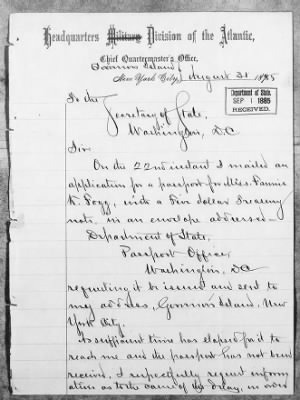 Headquarters Military Division of the Atlantic,
Chief Quartermaster's Office,
Governors Island,
New York City, August 31, 1885
Department of State,
SEP 1 1885
RECEIVED.
To the
Secretary of State,
Washington, D.C
Sir
On the 22nd instant I mailed an
application for a passport for Miss. Fannie
with a five dollar Treasury
note, in an envelope addressed—
Department of State,
Passport Office,
Washington, D.C
requesting it be issued and sent to
my address, Governors Island, New
York City.
As sufficient time has elapsed for it to
reach me and the passport has not been
receive, I respectfully request inform
ation as to the cause of the delay, in